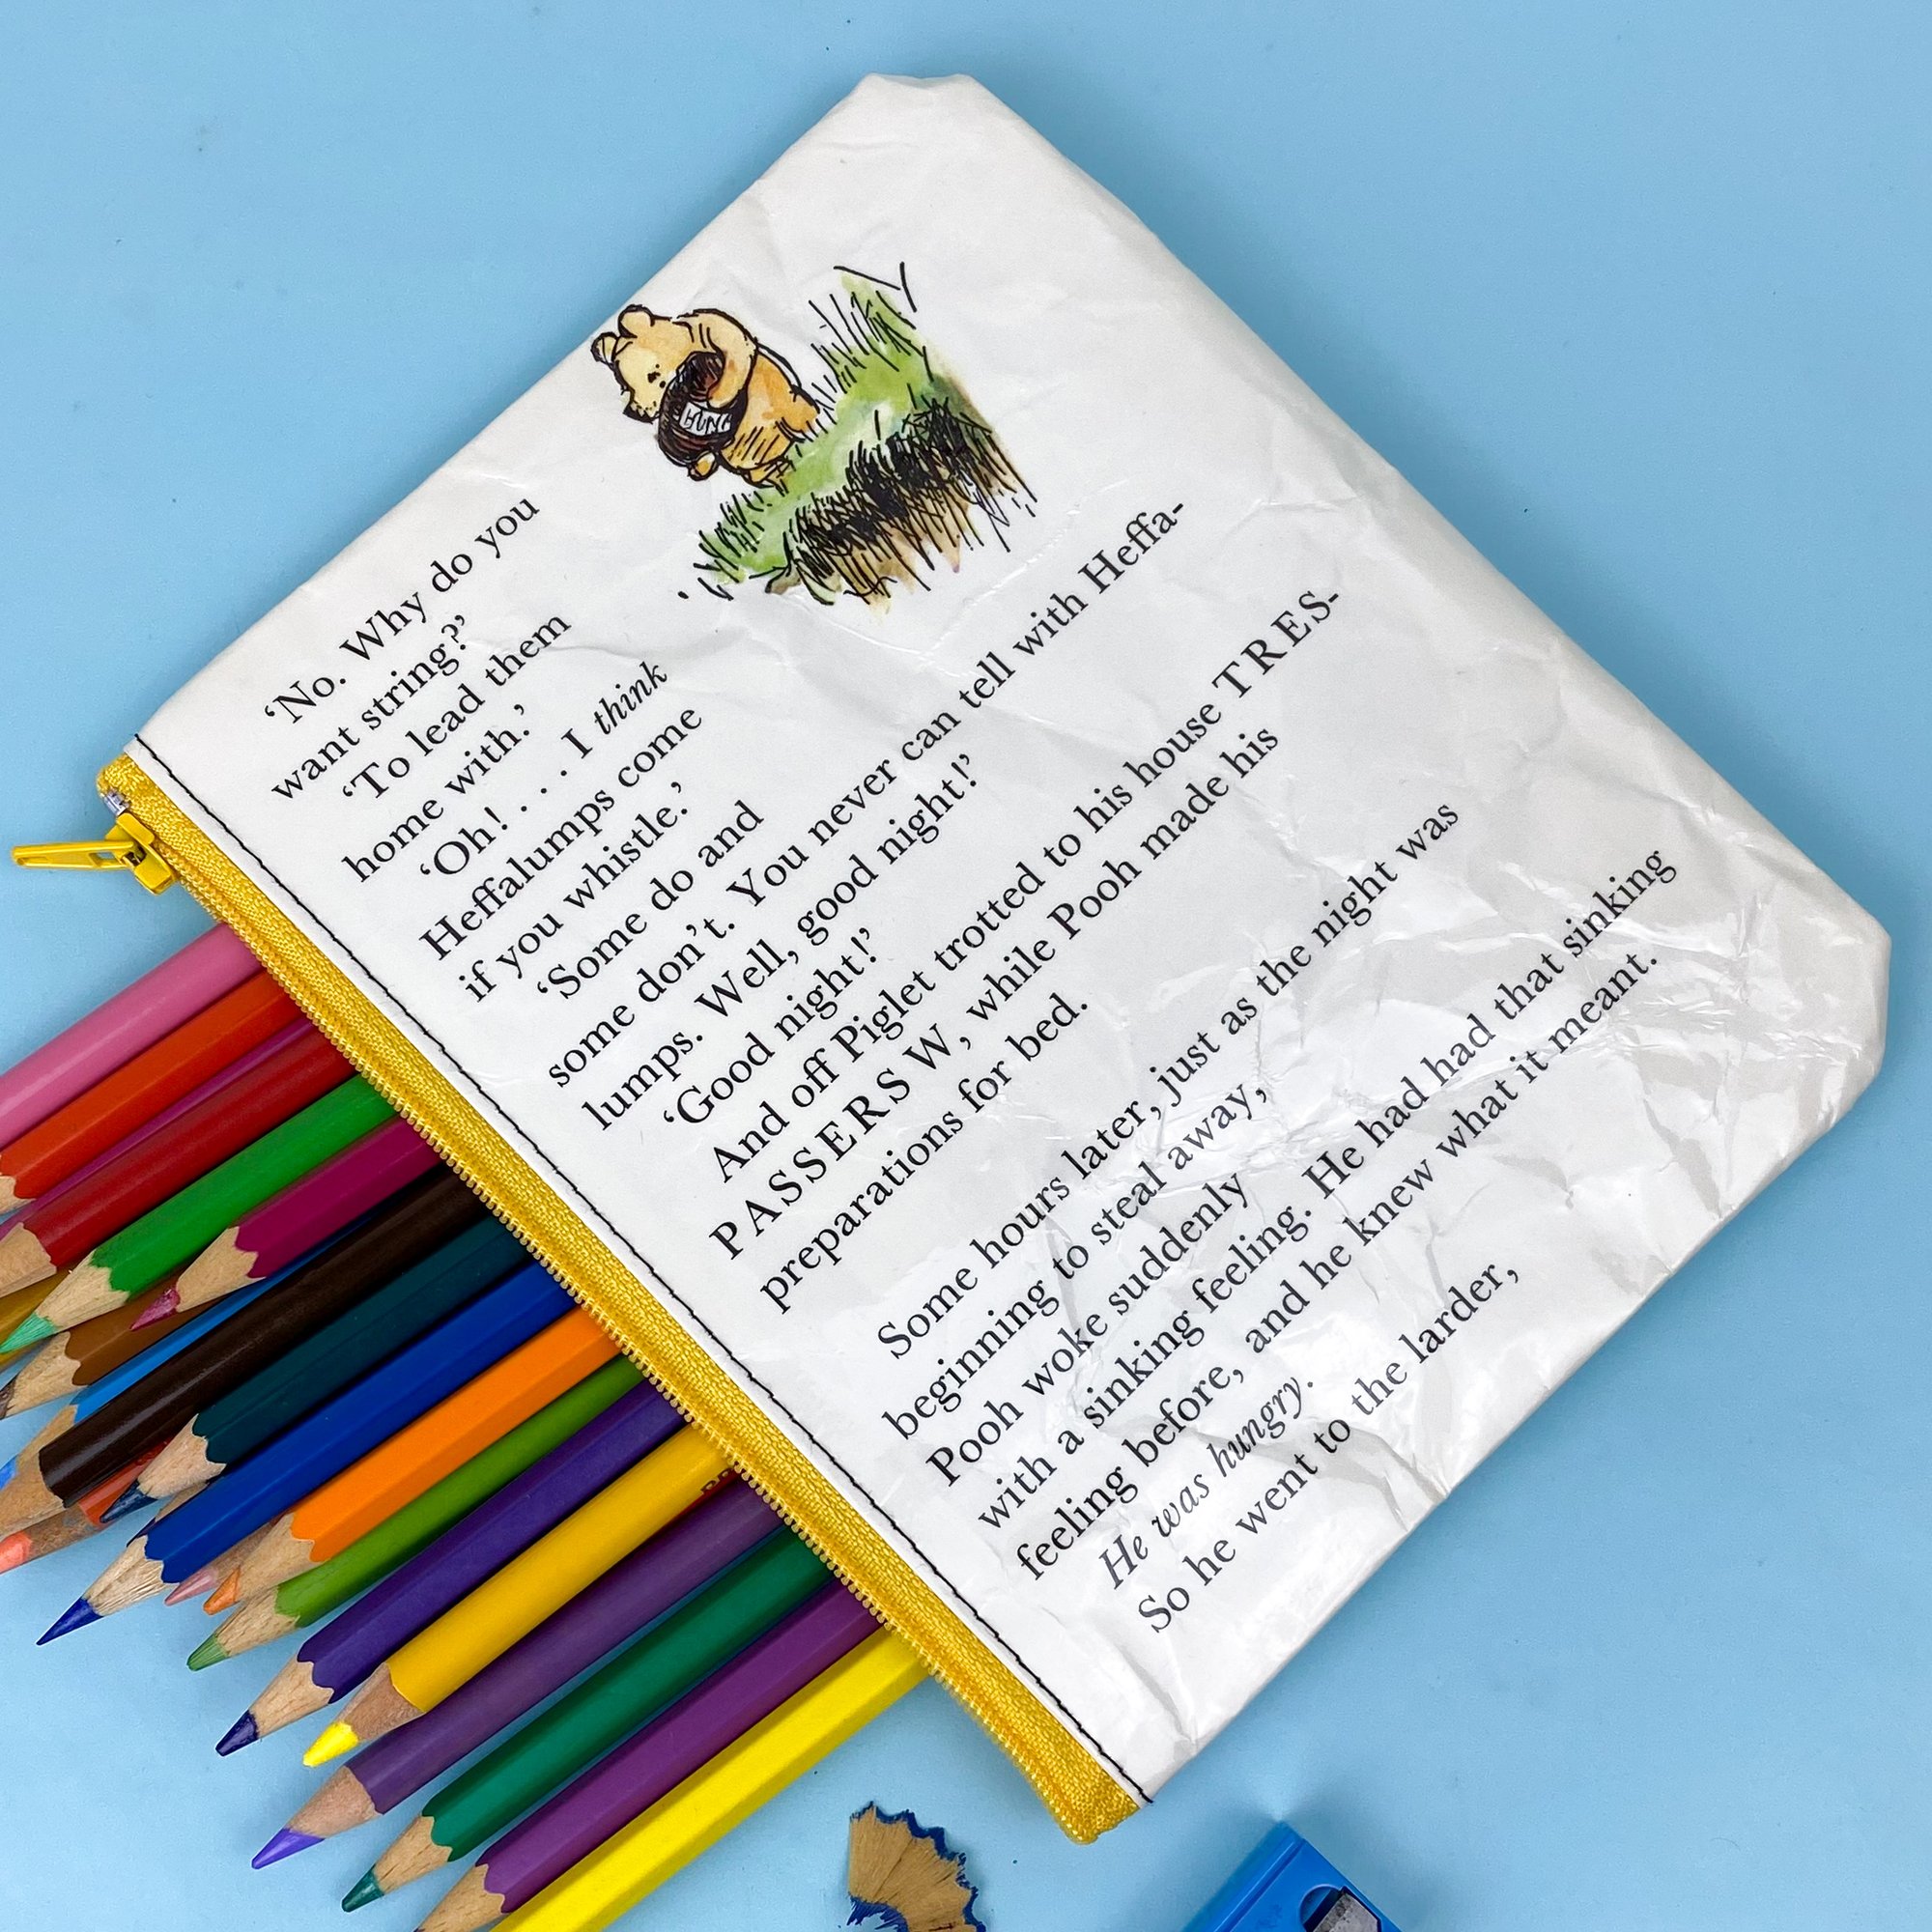 ‘No. Why do you
want string?’
‘To lead them
home with.’
‘Oh! . . . I think
Heffalumps come
if you whistle.’
‘Some do and
some don’t. You never can tell with Heffa-
lumps. Well, good night!’
‘Good night!’
And off Piglet trotted to his house TRES-
PASSERS W, while Pooh made his
preparations for bed.
Some hours later, just as the night was
beginning to steal away,
Pooh woke suddenly
with a sinking feeling. He had had that sinking
feeling before, and he knew what it meant.
He was hungry.
So he went to the larder,